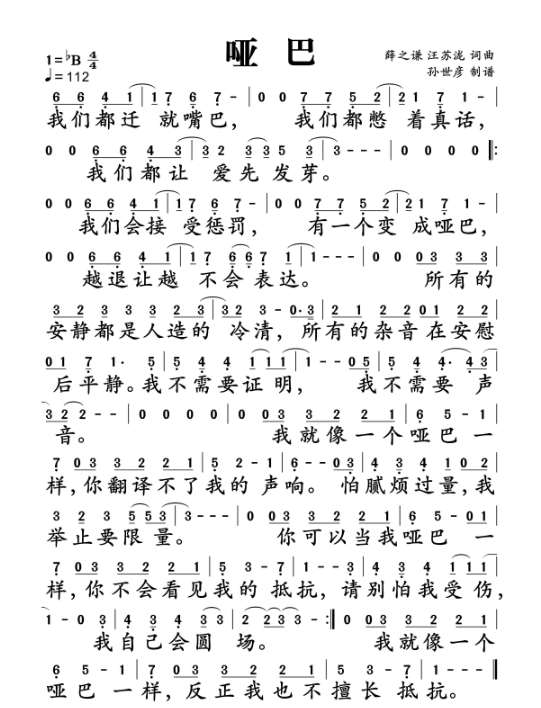 哑巴
1=♭B 4/4
薛之谦 汪苏泷 词曲
♩=112
孙世彦 制谱
6 6 4 1 | 1 7 6 7 - | 0 0 7 7 5 2 | 2 1 7 1 - |
我们都迁 就嘴巴， 我们都憋 着真话，
0 0 6 6 4 3 | 3 2 3 3 5 | 3 - - - | 0 0 0 0 :
我们都让 爱先发芽。
0 0 6 6 4 1 | 1 7 6 7 - | 0 0 7 7 5 2 | 2 1 7 1 - |
我们会接 受惩罚， 有一个变 成哑巴，
0 0 6 6 4 3 | 1 7 6 6 7 1 | 1 - - - | 0 0 0 1 2 |
越退让越 不会表达。 所有的
3 2 3 3 3 2 3 | 3 2 3 - 0· 3 | 2 1 2 2 0 2 1 |
安静都是人造的 冷清，所有的杂音在安慰
0 1 7 1· 5 | 5 4 5 4 0 1 1 1 | 1 - - 0 5 | 5 4 5 4· 4 3 |
后平静。我不需要证明， 我不需要 声
3 2 2 - - | 0 0 0 0 | 0 0 3 3 2 2 1 | 6 5 - 1 |
音。 我就像一个哑巴 一
7 0 3 3 2 2 1 | 5 2 - 1 | 6 - - 0 3 | 4 3 4 1 0 2 |
样，你翻译不了我的 声响。 怕腻烦过量，我
3 2 3 5 5 3 | 3 - - - | 0 0 3 3 2 2 1 | 6 5 - 1 |
举止要限量。 你可以当我哑巴 一
7 0 3 3 2 2 1 | 5 2 - 1 | 1 - - 3 | 4 3 4 1 1 1 |
样，你不会看见我的 抵抗，请别怕我受伤，
1 - 0 3 | 4 3 4 3 3 | 3 2 2 - :| 0 0 3 3 2 2 1 |
我自己会圆 场。 我就像一个
6 5 - 1 | 7 0 3 3 2 2 1 | 5 3 - 7 | 1 - - - ‖
哑巴 一样，反正我也不擅长 抵抗。